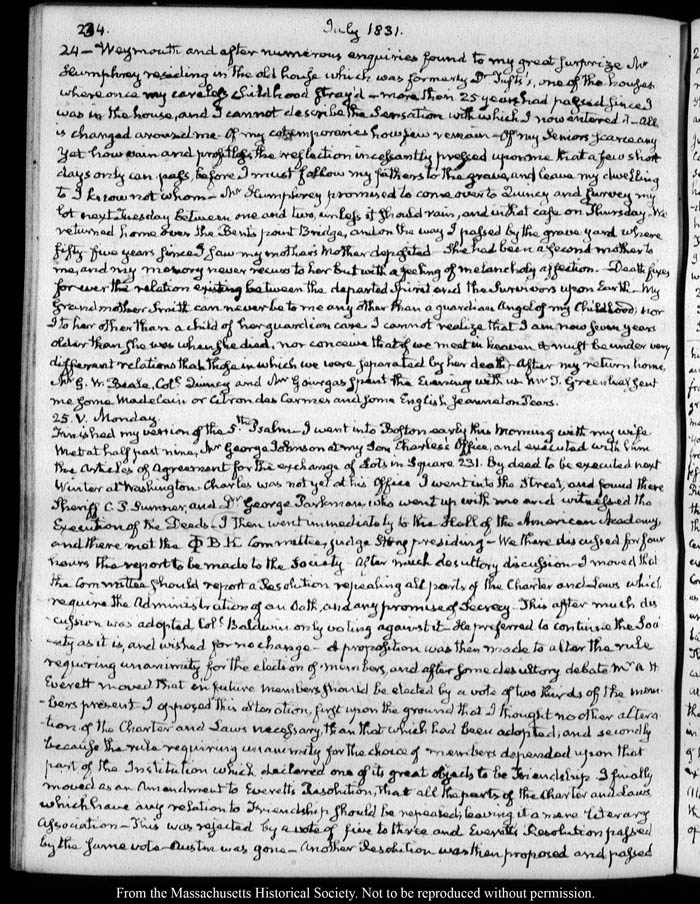 234.
July 1831.
24 — Weymouth and after numerous enquiries found to my great surprize Mr
Humphrey residing in the old house which was formerly Dr Tufts's, one of the houses
where once my careless childhood stray'd — more than 25 years had passed since I
was in the house, and I cannot describe the sensation with which I now entered it — All
is changed around me. Of my cotemporaries how few remain — Of my Seniors scarce any
Yet how vain and profitless the reflection incessantly pressed upon me that a few short
days only can pass, before I must follow my fathers to the grave, and leave my dwelling
to I know not whom — Mr Humphrey promised to come over to Quincy and survey my
lot next Tuesday between one and two, unless it should rain, and in that case on Thursday. We
returned home over the Bents point Bridge, and on the way I passed by the grave yard where
fifty five years since I saw my mother's Mother deposited. She had been a second mother to
me, and my memory never recurs to her but with a feeling of melancholy affection. — Death fixes
for ever the relation existing between the departed Spirit and the Survivors upon Earth. — My
Grandmother Smith can never be to me any other than a guardian Angel of my Childhood; nor
I to her other than a child of her guardian care. I cannot realize that I am now seven years
older than she was when she died, nor conceive that if we meet in heaven it must be under very
different relations than those in which we were separated by her death — After my return home,
Mr G. W. Beale, Coll. Quincy and Mr Gourgas spent the Evening with us. Mr T. Greenleaf sent
me some Madelain or Citron des Carmes and some English Jeanneton Pears.
25. V. Monday.
Finished my version of the 5th Psalm — I went into Boston early this morning with my wife
Met at half past nine, Mr George Johnson at my Son Charles's Office, and executed with him
the Articles of Agreement for the exchange of Lots in Square 231. By deed to be executed next
Winter at Washington. Charles was not yet at his Office I went into the Street, and found there
Sheriff C. P. Sumner, and Dr George Parkman, who went up with me and witnessed the
Execution of the Deeds. I then went immediately to the Hall of the American Academy,
and there met the Φ B. K. Committee, Judge Story presiding — We there discussed for four
hours the report to be made to the Society. After much desultory discussion I moved that
the Committee should report a Resolution repealing all parts of the Charter and Laws which
require the Administration of an Oath, and any promise of Secrecy — This after much dis
cussion was adopted Coll. Baldwin only voting against it — He preferred to continue the Soci
ety as it is, and wished for no change — A proposition was then made to alter the rule
requiring unanimity for the election of members, and after some desultory debate Mr A. H.
Everett moved that in future members should be elected by a vote of two thirds of the mem
bers present — I opposed this alteration, first upon the ground that I thought no other altera
tion of the Charter and Laws necessary, than that which had been adopted; and secondly
because the rule requiring unanimity for the choice of members depended upon that
part of the Institution which declared one of its great objects to be Friendship. I finally
moved as an Amendment to Everett's Resolution, that all the parts of the Charter and Laws
which have any relation to Friendship should be repealed; leaving it a mere Literary
Association — This was rejected by a vote of five to three and Everett's Resolution passed
by the same vote — Austin was gone — Another Resolution was then proposed and passed
From the Massachusetts Historical Society. Not to be reproduced without permission.